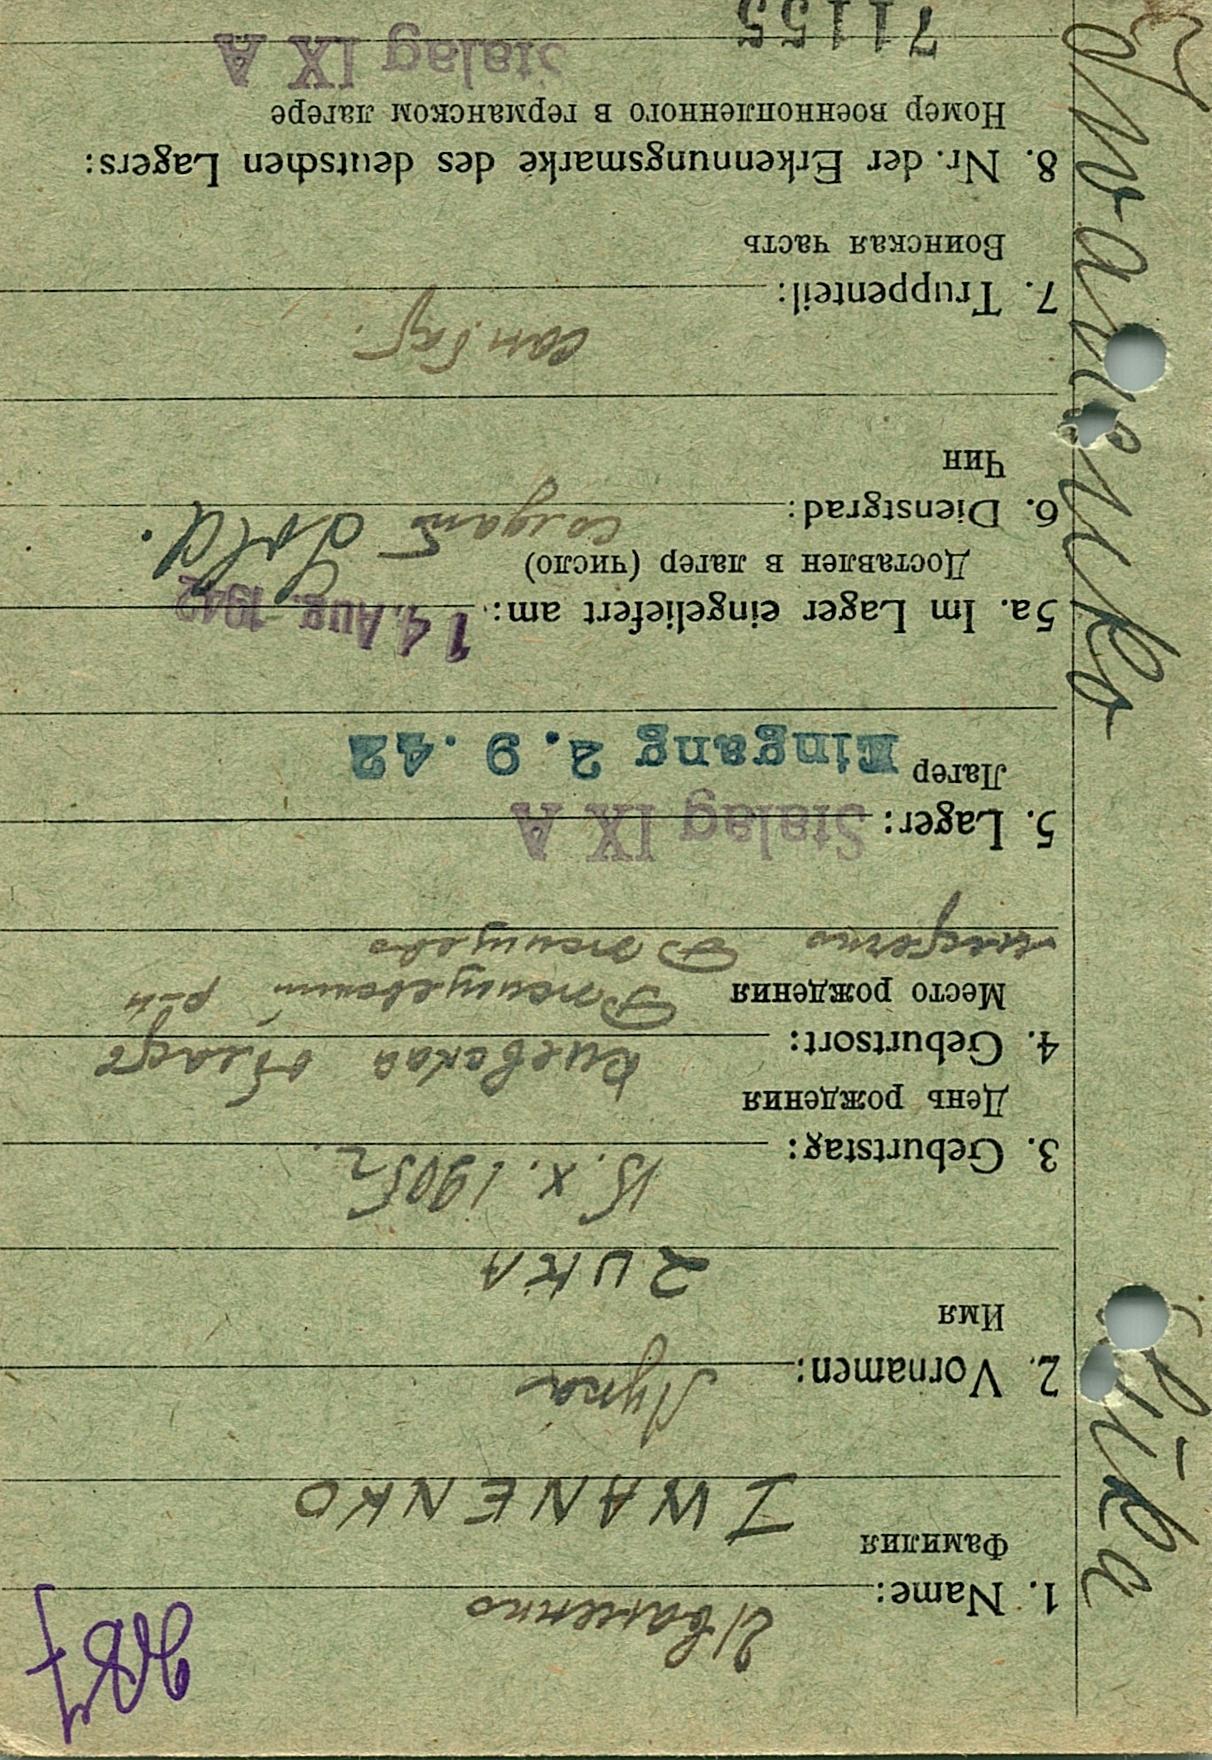 987
1. Name: Иваненко
Фамилия
IWANENKO
2. Vornamen: Лука
Имя
LUKA
3. Geburtstag: 15.X.1905 г.
День рождения
4. Geburtsort: Киевская область
Место рождения Ржищевский р-н
местечко Ржищево
5. Lager: Stalag IX A
Лагер Eingang 2.9.42
5a. Im Lager eingeliefert am: 14. Aug. 1942
Доставлен в лагер (число)
6. Dienstgrad: солдат Sold.
Чин
7. Truppenteil: сан бат.
Воинская часть
8. Nr. der Erkennungsmarke des deutschen Lagers:
Номер военнопленного в германском лагере
Stalag IX A
71155
Iwanenko
Luka